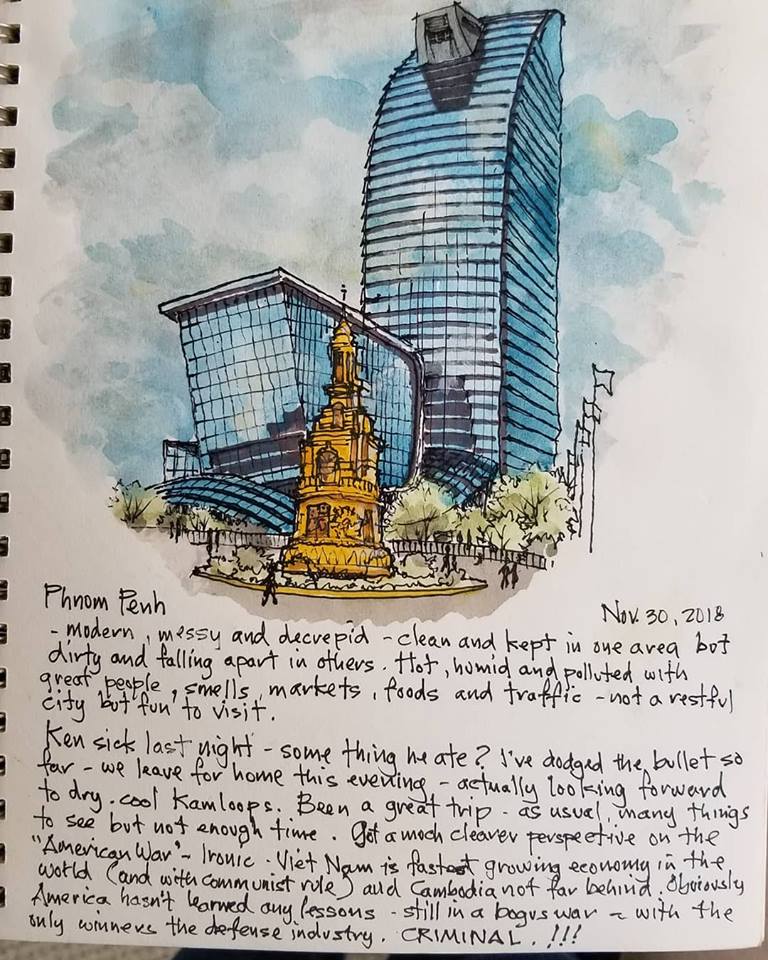 Phnom Penh
Nov. 30, 2018
- modern, messy and decrepid - clean and kept in one area but
dirty and falling apart in others. Hot, humid and polluted with
great people, smells, markets, foods and traffic - not a restful
city but fun to visit.
Ken sick last night - some thing he ate? I've dodged the bullet so
far - we leave for home this evening - actually looking forward
to dry. cool Kamloops. Been a great trip - as usual, many things
to see but not enough time. Got a much clearer perspective on the
"American War" - Ironic. Viet Nam is fastest growing economy in the
world (and with communist rule) and Cambodia not far behind. Obviously
America hasn't learned any lessons - still in a bogus war - with the
only winners the defense industry. CRIMINAL.!!!